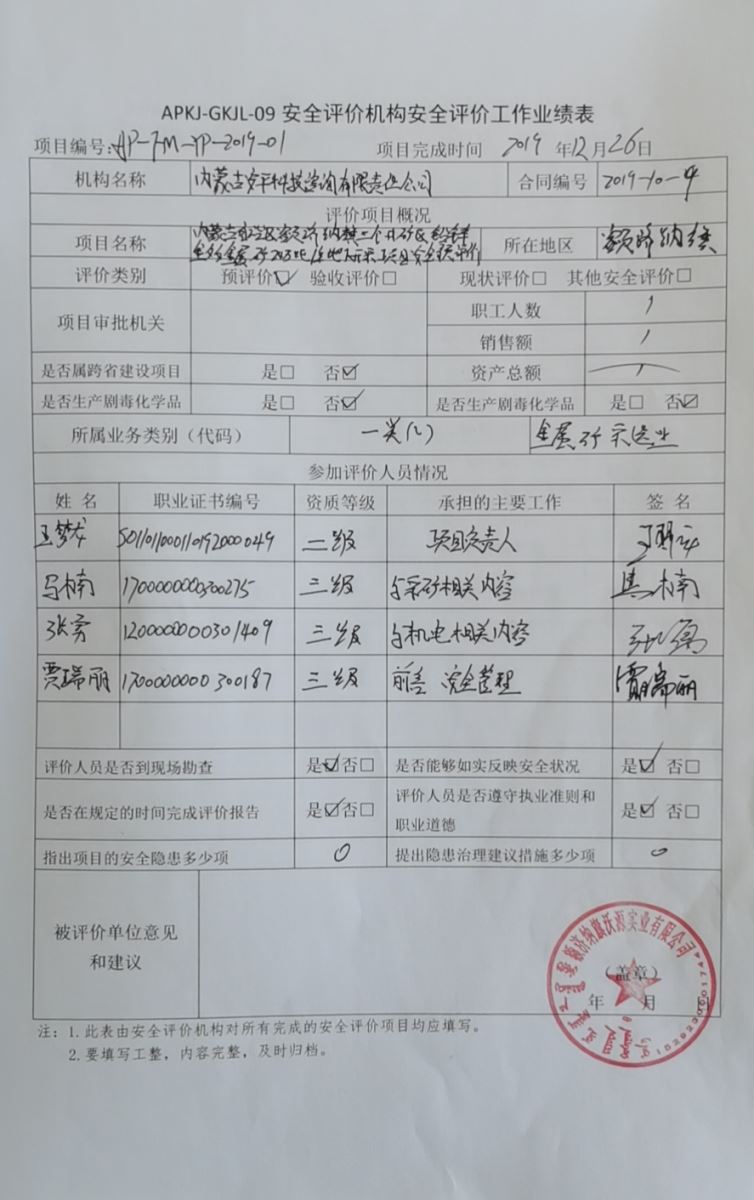 APKJ-GKJL-09 安全评价机构安全评价工作业绩表
项目编号: AP-FM-YP-2019-01 项目完成时间 2019 年 12 月 26 日
机构名称 内蒙古安平科技咨询有限责任公司 合同编号 2019-10-4
评价项目概况
项目名称 内蒙古自治区额济纳旗 矿区
金属矿 地下开采项目安全预评价
所在地区 额济纳旗
评价类别 预评价☑ 验收评价□ 现状评价□ 其他安全评价□
项目审批机关 职工人数 /
销售额 /
是否属跨省建设项目 是□ 否☑ 资产总额 /
是否生产剧毒化学品 是□ 否☑ 是否生产剧毒化学品 是□ 否☑
所属业务类别（代码） 一类 金属矿采选业
参加评价人员情况
姓 名 职业证书编号 资质等级 承担的主要工作 签 名
王梦龙 S011011000110192000049 二级 项目负责人
马楠 1700000000300275 三级 与采矿相关内容 马楠
张勇 1200000000301409 三级 与机电相关内容 张勇
贾瑞丽 1700000000300187 三级 前言 安全管理 贾瑞丽
评价人员是否到现场勘查 是☑否□ 是否能够如实反映安全状况 是☑ 否□
是否在规定的时间完成评价报告 是☑否□ 评价人员是否遵守执业准则和
职业道德 是☑ 否□
指出项目的安全隐患多少项 0 提出隐患治理建议措施多少项 0
被评价单位意见
和建议
额济纳旗沃源实业有限公司
（盖章）
年 月 日
注：1.此表由安全评价机构对所有完成的安全评价项目均应填写。
2.要填写工整，内容完整，及时归档。